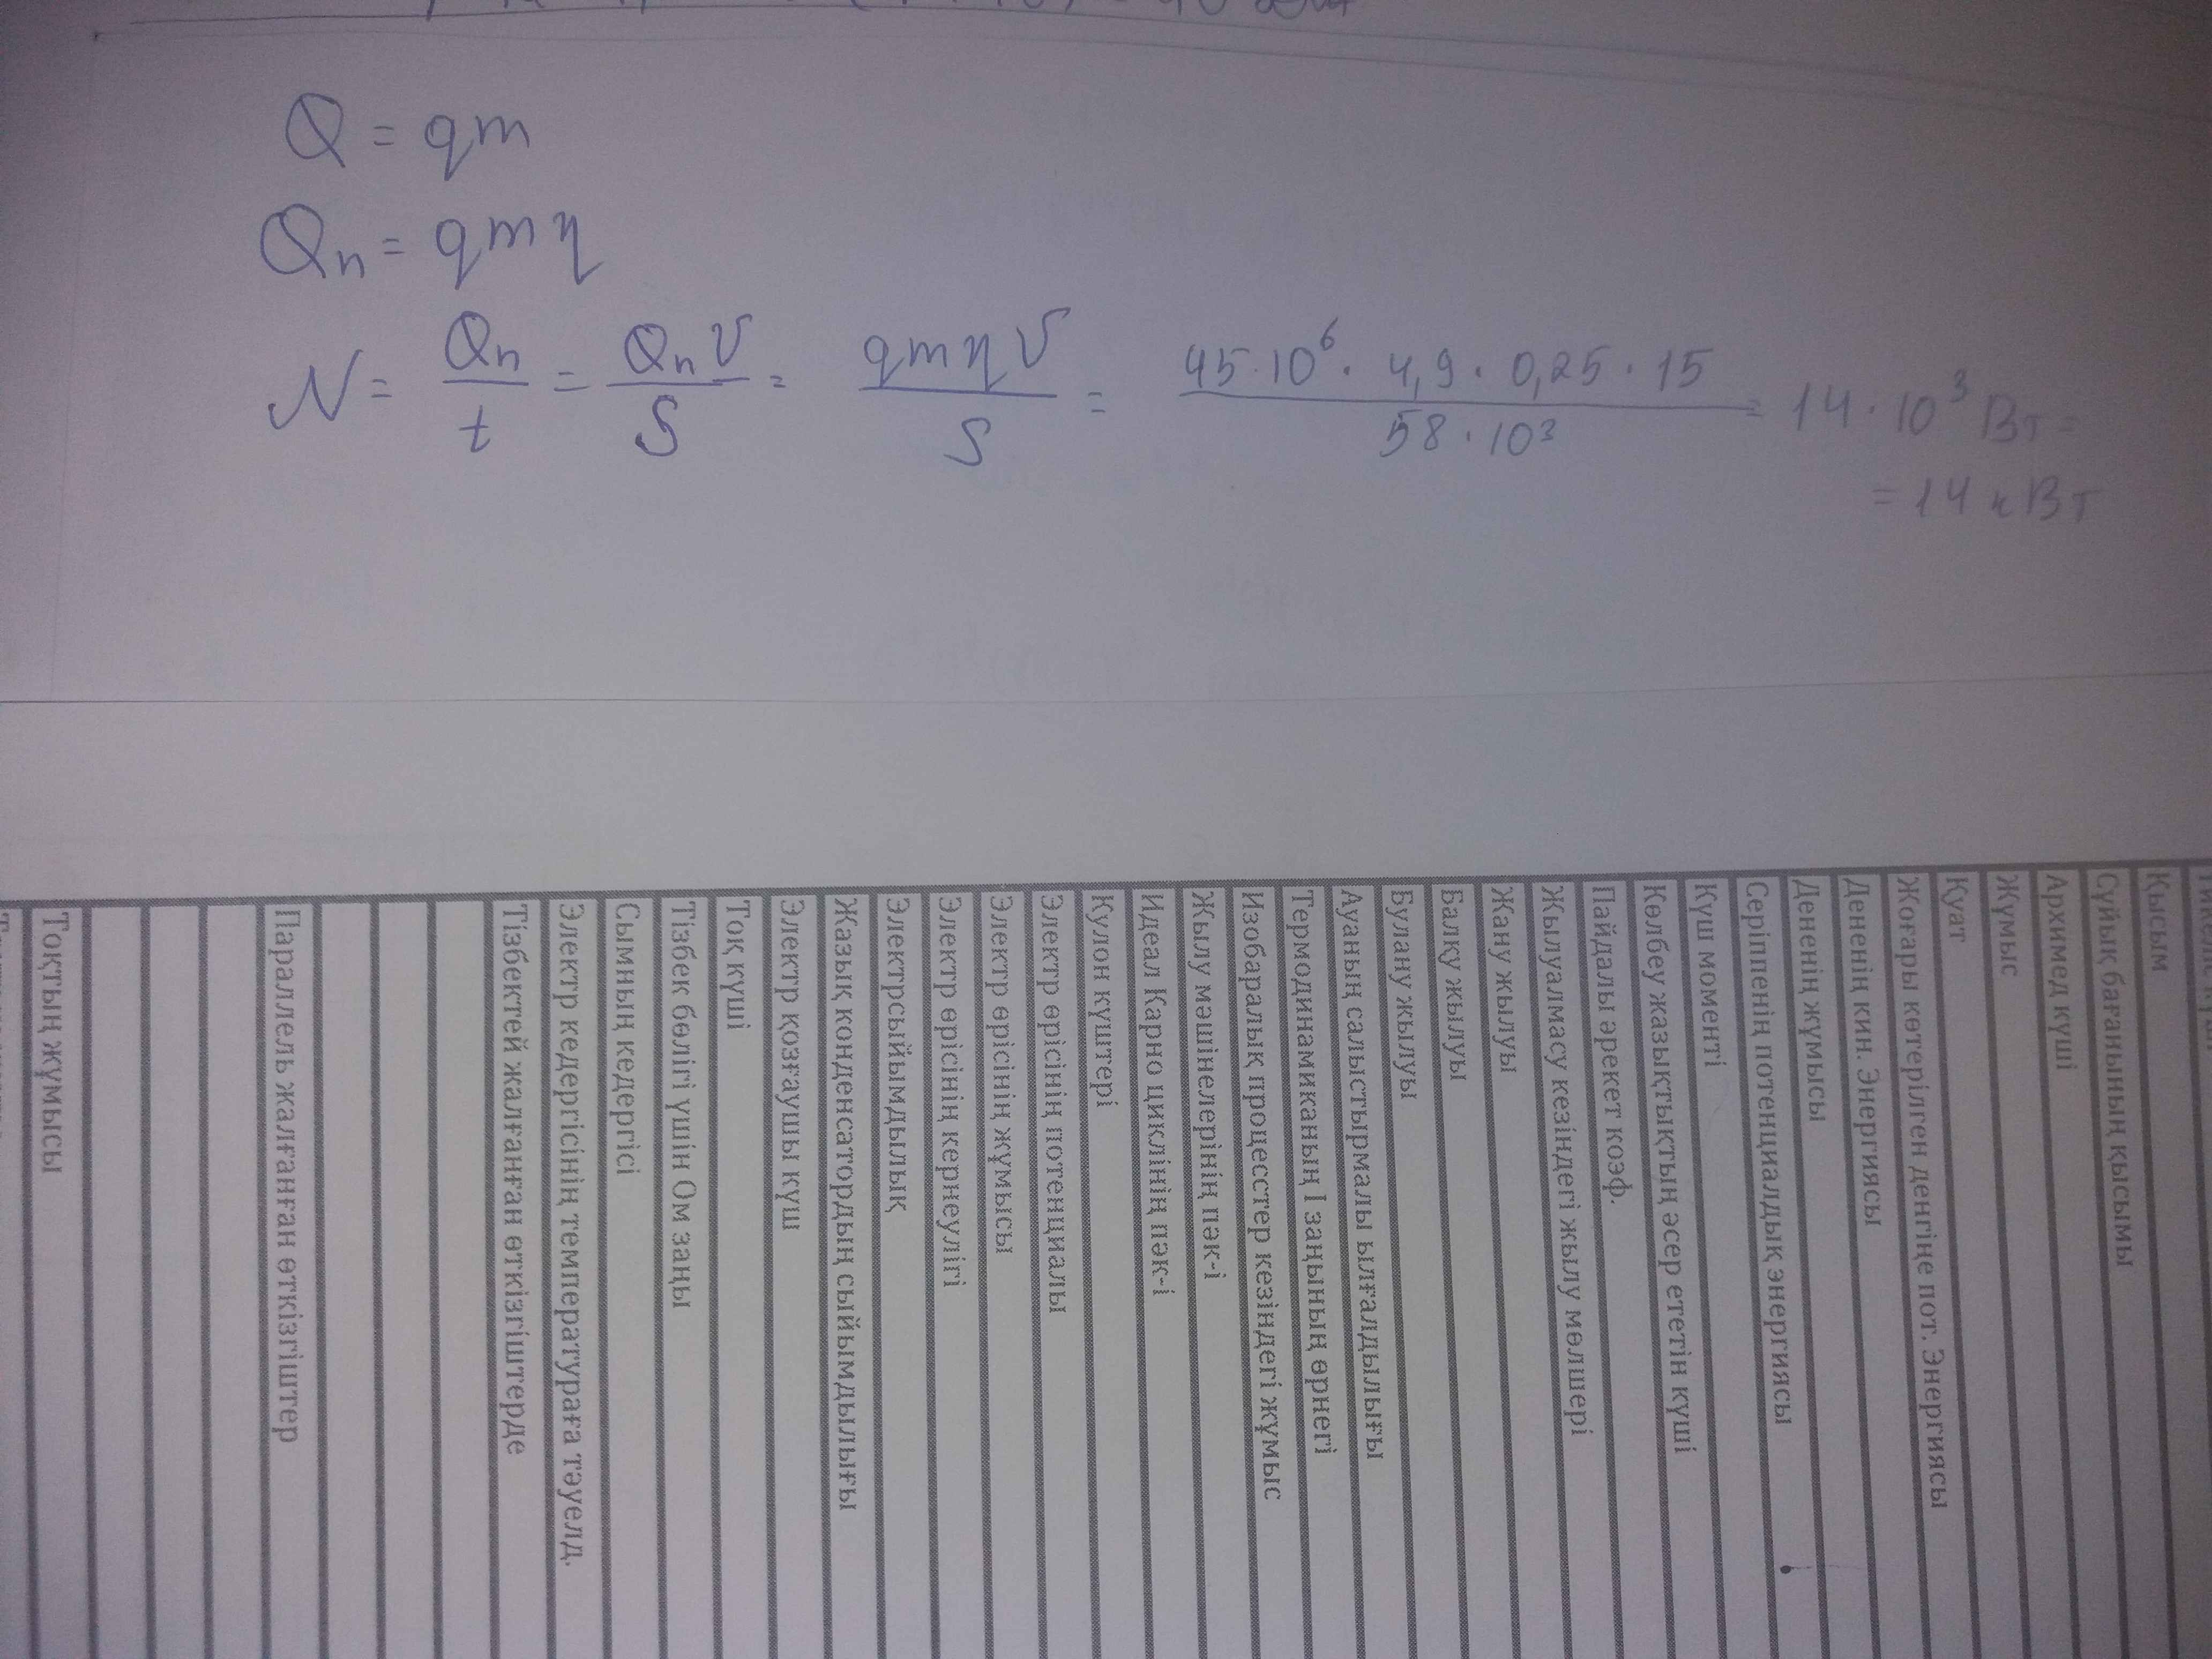 Q = qm
Qп = qmη
N = Qп/t = Qп v/S = qmηv/S = 45·10⁶ · 4,9 · 0,25 · 15 / 58·10³ = 14·10³ Вт =
= 14 кВт
Қысым
Сұйық бағанының қысымы
Архимед күші
Жұмыс
Қуат
Жоғары көтерілген денгіңе пот. Энергиясы
Дененің кин. Энергиясы
Дененің жұмысы
Серіппенің потенциалдық энергиясы
Күш моменті
Көлбеу жазықтықтың әсер ететін күші
Пайдалы әрекет коэф.
Жылуалмасу кезіндегі жылу мөлшері
Жану жылуы
Балқу жылуы
Булану жылуы
Ауаның салыстырмалы ылғалдылығы
Термодинамиканың I заңының өрнегі
Изобаралық процесстер кезіндегі жұмыс
Жылу мәшінелерінің пәк-і
Идеал Карно циклінің пәк-і
Кулон күштері
Электр өрісінің потенциалы
Электр өрісінің жұмысы
Электр өрісінің кернеулігі
Электрсыйымдылық
Жазық конденсатордың сыйымдылығы
Электр қозғаушы күш
Тоқ күші
Тізбек бөлігі үшін Ом заңы
Сымның кедергісі
Электр кедергісінің температураға тәуелд.
Тізбектей жалғанған өткізгіштерде
Параллель жалғанған өткізгіштер
Тоқтың жұмысы